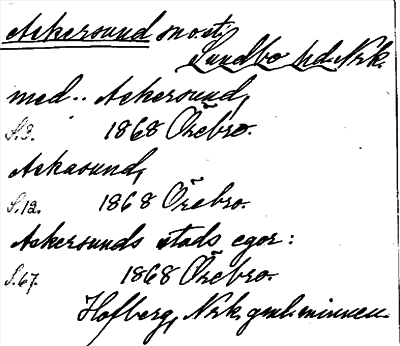 Askersund snvst,
Sundbo hd. Nrk.
med.. Askersund,
S.3. 1868 Örebro.
Askasund,
S.12. 1868 Örebro.
Askersunds stads egor:
S.67. 1868 Örebro.
Hofberg, Nrk. gml. minnen.